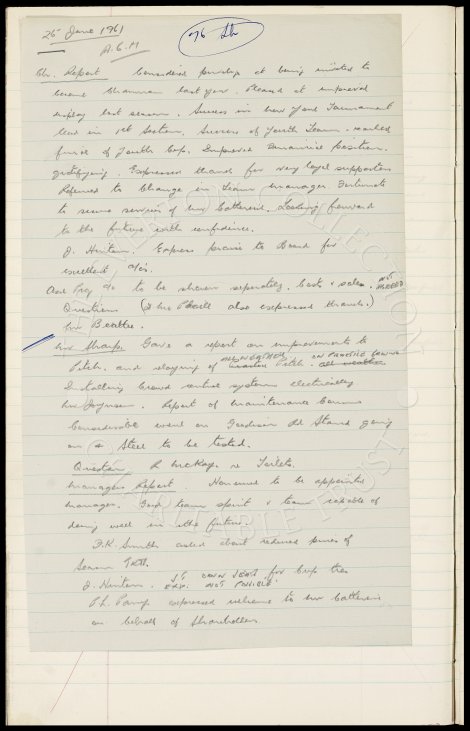 25 June 1961
76 th
A.G.M
Ch. Report Considered privilege at being invited to
become Chairman last year. Pleased at improved
display last season. Success in New York Tournament
in 1st Section. Success of Youth Team. reached
final of Youth Cup. Improved financial position.
gratifying. Expressed thanks for very loyal supporters
Referred to Change in team manager. Fortunate
to secure services of Mr Catterick. Looking forward
to the future with confidence.
J. Express praise to Board for
excellent a/cs.
a/c to be shown separately. Costs & sales. NOT AGREED
Questions (I also expressed thanks.)
Mr Beattie.
Mr Sharp. Gave a report on improvements to
Pitch. and relaying of ALL WEATHER Pitch ON PRACTICE GROUND
Installing crowd control systems electrically
Mr Joynson. Report of maintenance
Considerable work on Goodison Rd Stand going
on & Steel to be tested.
Question R McKay. re Toilets.
Managers Report. Honoured to be appointed
manager. Good team spirit & team capable of
doing well in the future.
F.R. Smith asked about reduced prices of
Season Tkts.
J. for Cup ties
EXP. NOT POSSIBLE.
Ph. expressed welcome to Mr Catterick
on behalf of Shareholders.
COLLECTION